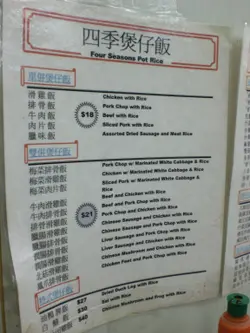 四季煲仔飯
Four Seasons Pot Rice
單併煲仔飯
滑雞飯 Chicken with Rice
排骨飯 Pork Chop with Rice
牛肉飯 Beef with Rice
肉片飯 Sliced Pork with Rice
臘味飯 Assorted Dried Sausage and Meat Rice
$18
雙併煲仔飯
梅菜排骨飯 Pork Chop w/ Marinated White Cabbage & Rice
梅菜滑雞飯 Chicken w/ Marinated White Cabbage & Rice
梅菜肉片飯 Sliced Pork w/ Marinated White Cabbage & Rice
牛肉滑雞飯 Beef and Chicken with Rice
牛肉排骨飯 Beef and Pork Chop with Rice
排骨滑雞飯 Pork Chop and Chicken with Rice
臘腸滑雞飯 Chinese Sausage and Chicken with Rice
臘腸排骨飯 Chinese Sausage and Pork Chop with Rice
Liver Sausage and Pork Chop with Rice
Liver Sausage and Chicken with Rice
Chinese Mushroom and Chicken with Rice
Chicken Feet and Pork Chop with Rice
$21
煲仔飯
$27 Dried Duck Leg with Rice
$38 Eel with Rice
$40 Chinese Mushroom and Frog with Rice